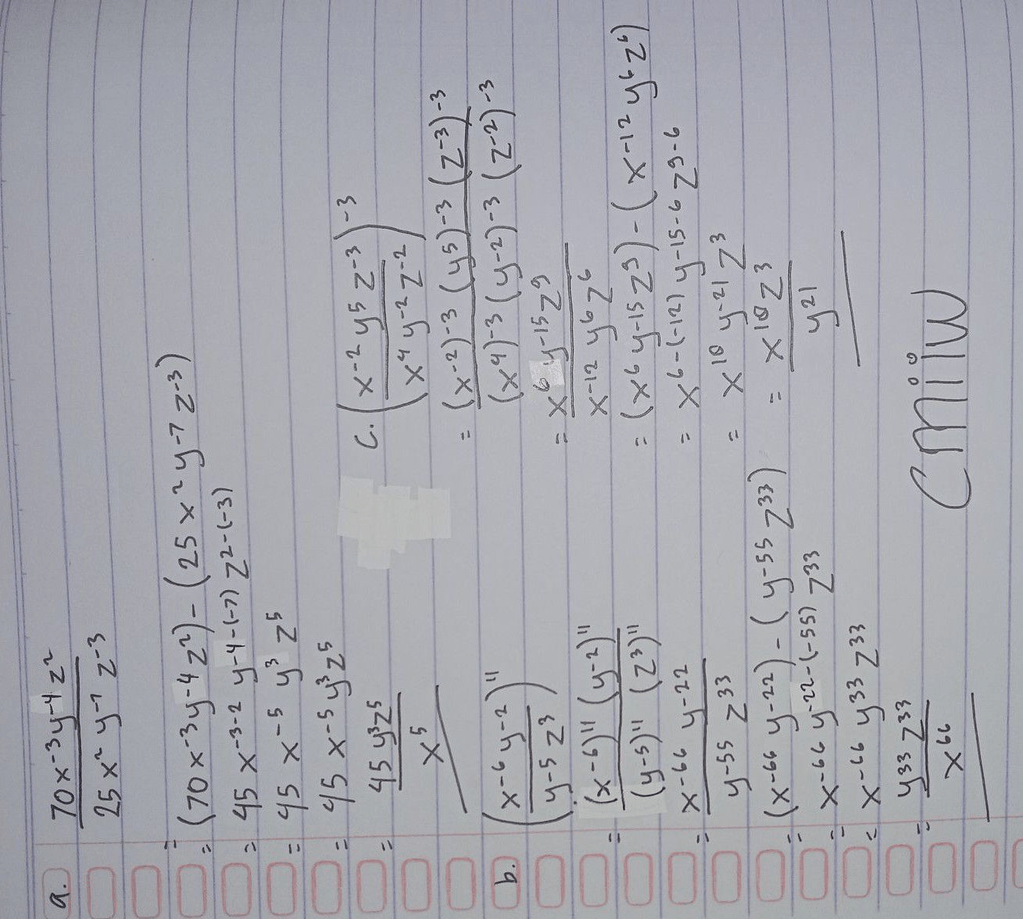 a. 70x⁻³y⁻⁴z²
25x²y⁻⁷z⁻³
= (70x⁻³y⁻⁴z²) - (25x²y⁻⁷z⁻³)
= 45x⁻³⁻²y⁻⁴⁻⁽⁻⁷⁾z²⁻⁽⁻³⁾
= 45x⁻⁵y³z⁵
= 45x⁻⁵y³z⁵
= 45y³z⁵
x⁵
b. (x⁻⁶y⁻²)¹¹
(y⁻⁵z³)
= (x⁻⁶)¹¹ (y⁻²)¹¹
(y⁻⁵)¹¹ (z³)¹¹
= x⁻⁶⁶ y⁻²²
y⁻⁵⁵ z³³
= (x⁻⁶⁶y⁻²²) - (y⁻⁵⁵z³³)
= x⁻⁶⁶y⁻²²⁻⁽⁻⁵⁵⁾z³³
= x⁻⁶⁶y³³z³³
= y³³z³³
x⁶⁶
c. (x⁻²y⁵z⁻³)⁻³
(x⁴y⁻²z⁻²)
= (x⁻²)⁻³ (y⁵)⁻³ (z⁻³)⁻³
(x⁴)⁻³ (y⁻²)⁻³ (z⁻²)⁻³
= x⁶y⁻¹⁵z⁹
x⁻¹²y⁶z⁶
= (x⁶y⁻¹⁵z⁹) - (x⁻¹²y⁶z⁶)
= x⁶⁻⁽⁻¹²⁾y⁻¹⁵⁻⁶z⁹⁻⁶
= x¹⁸y⁻²¹z³
= x¹⁸z³
y²¹
Cmiiw